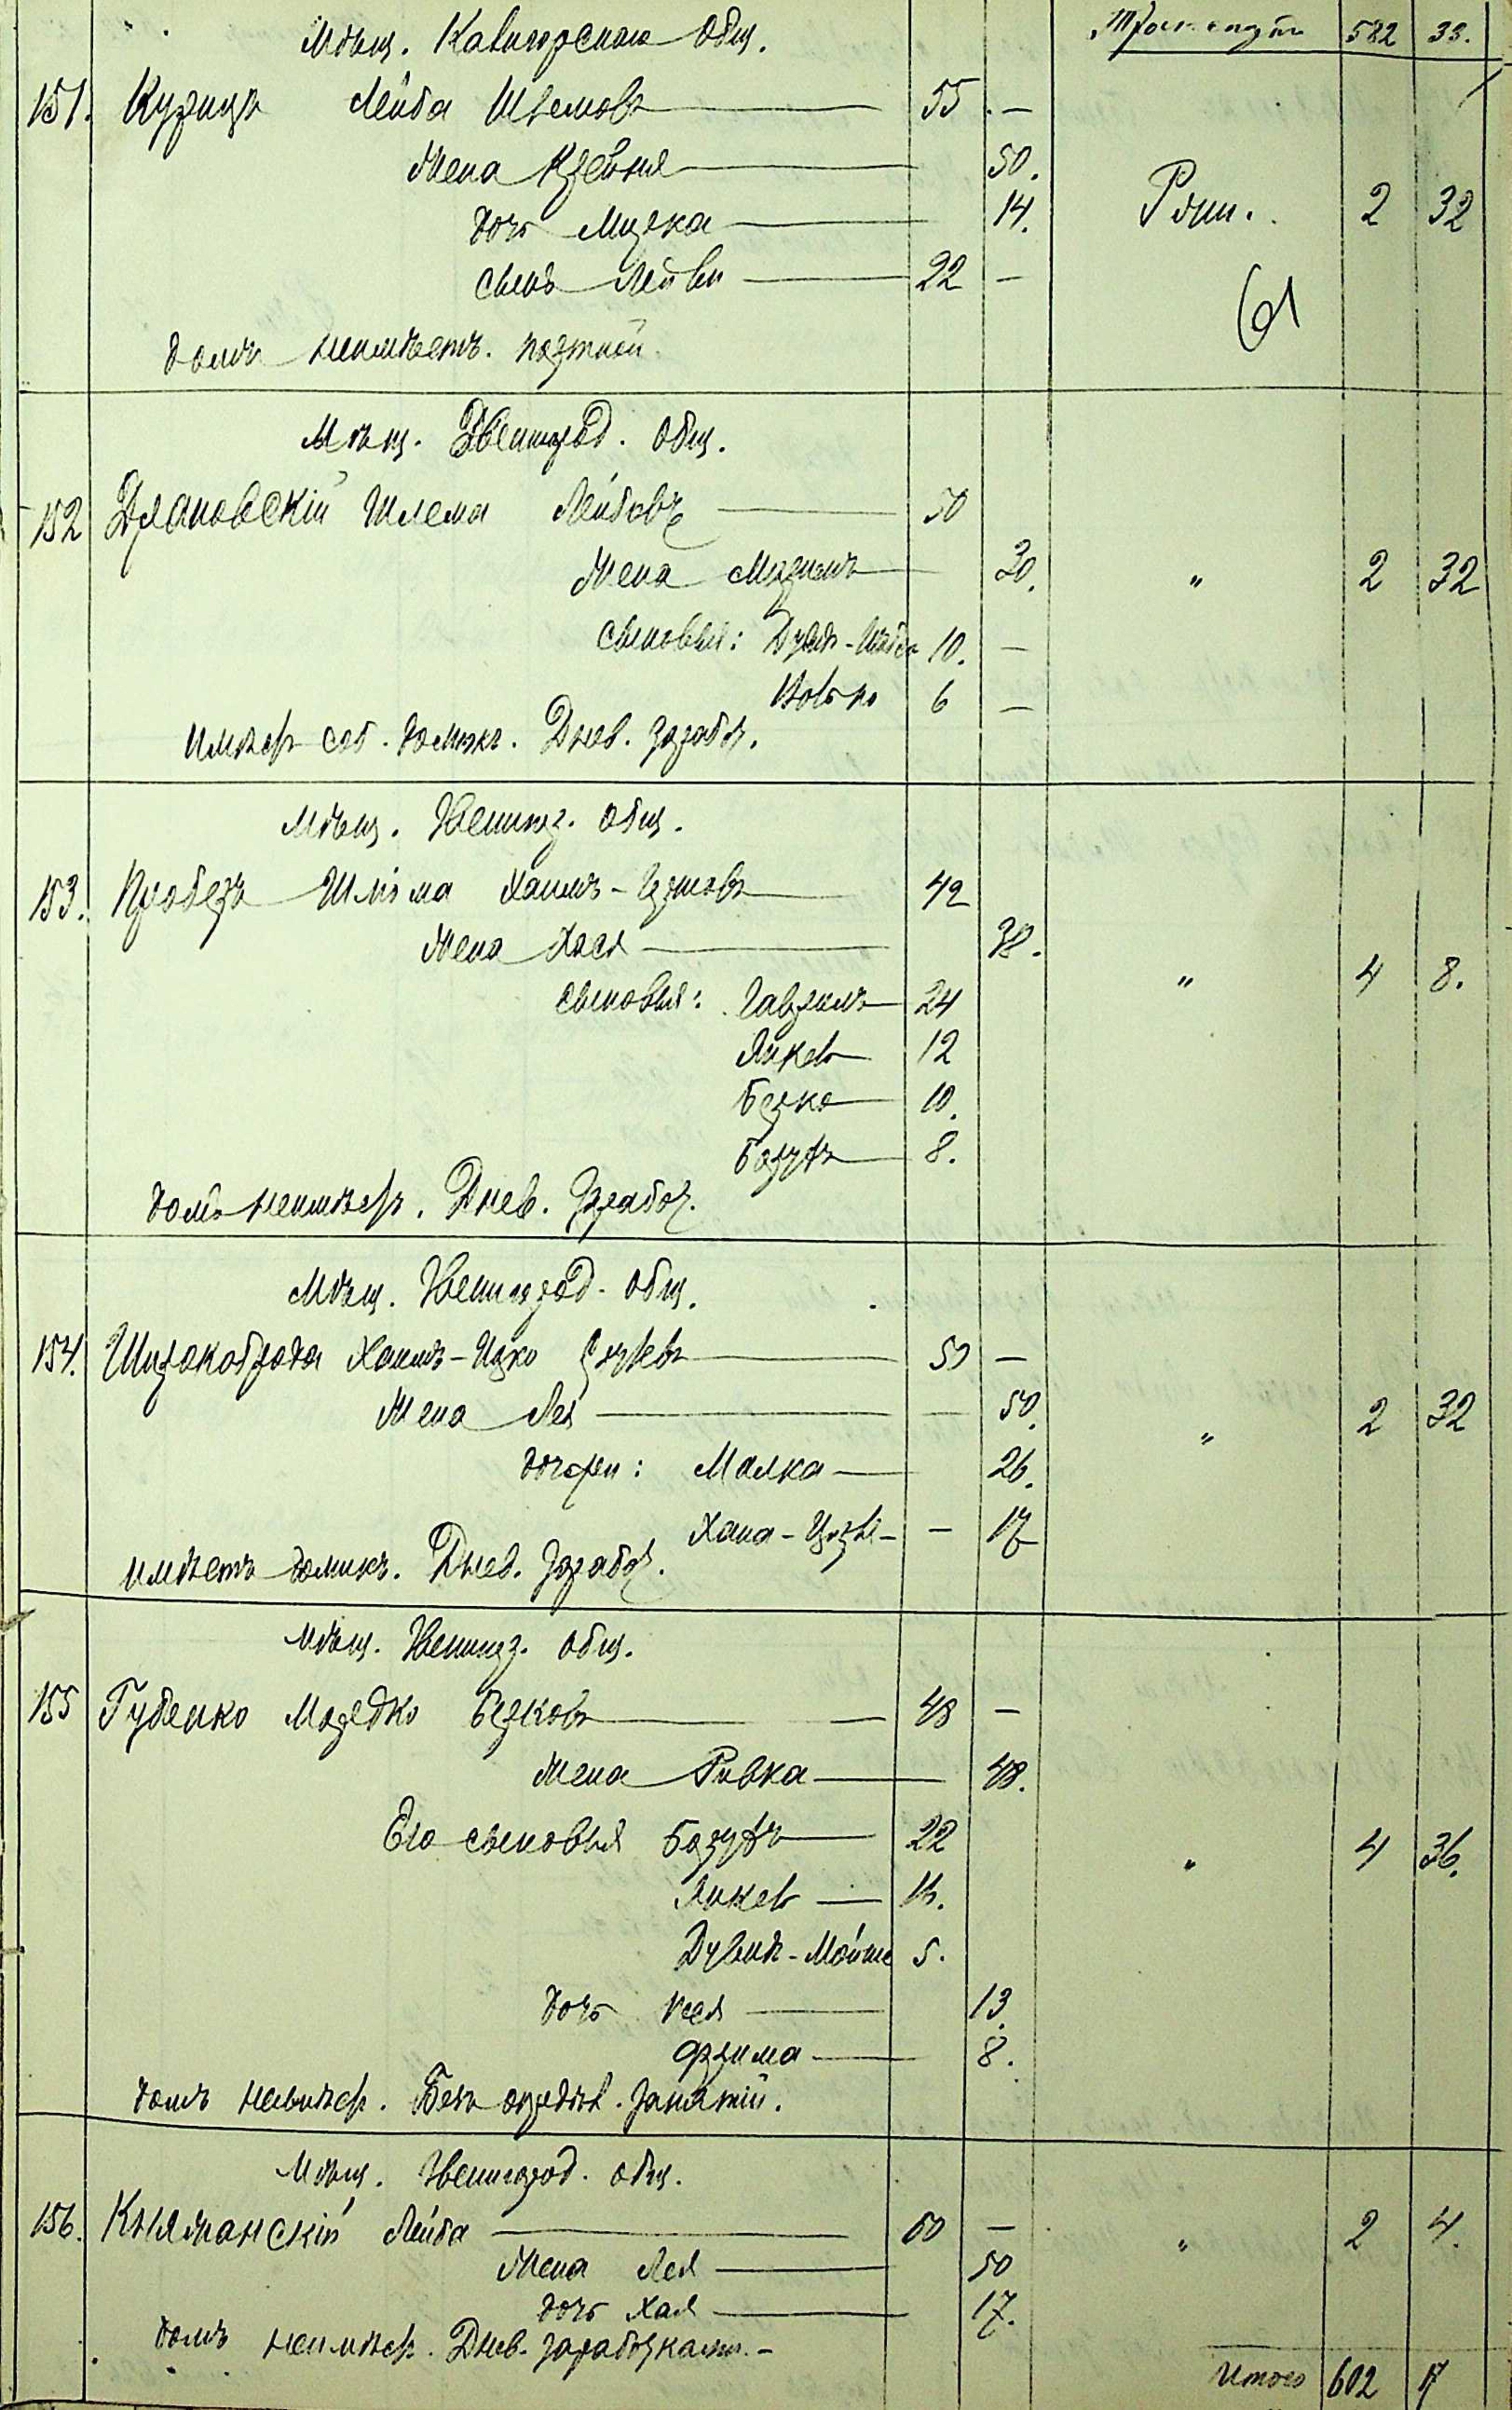 Мѣщ. Кавнорскаго Общ.
Транспортъ 582 33.
151. Курицъ Лейба Шлемовъ 55 . —
Жена Крейня 50.
дочь Милка 14. Рош. 2 32
сынъ Лейви 22 —
61
домъ неимѣетъ. портной
Мѣщ. Звенигород. Общ.
152 Дяновскій Шлема Лейбовъ 50
Жена 30. " 2 32
Сыновья: Дувидъ- 10. —
Волько 6 —
имѣетъ соб. домикъ. Днев. заработ.
Мѣщ. Звенигор. Общ.
153. Проберъ Шліома Хаимъ-Ицковъ 42
Жена Хася 38. " 4 8.
Сыновья: Гаврилъ 24
Янкель 12
Берко 10.
Борухъ 8.
домъ неимѣетъ. Днев. Заработ.
Мѣщ. Звенигород. Общ.
154. Широкоброда Хаимъ-Ицко 50 —
Жена Лея — 50. " 2 32
дочери: Малка 26.
Хана- — 17
имѣетъ домикъ. Днев. Заработ.
Мѣщ. Звенигор. Общ.
155 Губенко Мордко Берковъ 48 —
Жена Ривка 48.
Его сыновья Борухъ 22 " 4 36.
Янкель
Дувидъ-Мойше 5.
дочь Кеся 13.
Фрима 8.
домъ неимѣетъ. Безъ опредѣл. занятій.
Мѣщ. Звенигород. общ.
156. Княжанскій Лейба 60 — " 2 4.
Жена Лея 50
дочь Хая 17.
домъ неимѣетъ. Днев. заработками. —
Итого 602 17